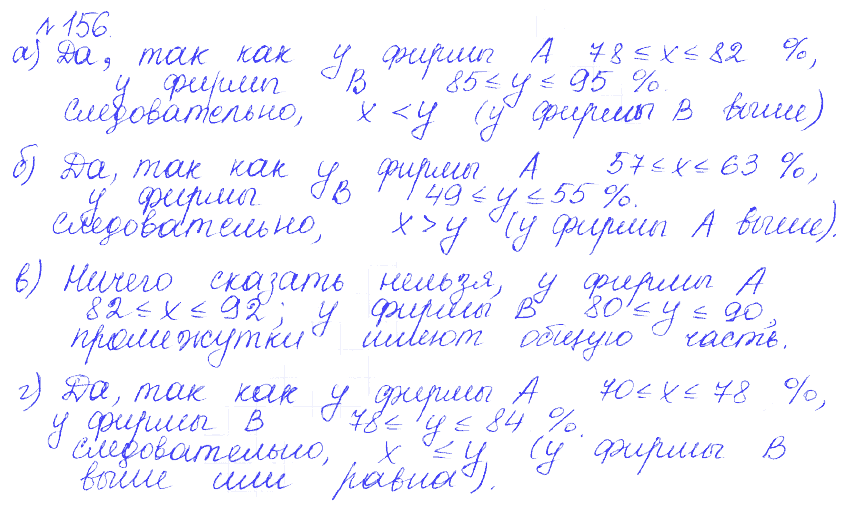 №156.
а) Да, так как у фирмы А 78 ≤ x ≤ 82 %,
у фирмы В 85 ≤ y ≤ 95 %.
следовательно, x < y (у фирмы В выше)
б) Да, так как у фирмы А 57 ≤ x ≤ 63 %,
у фирмы В 49 ≤ y ≤ 55 %.
следовательно, x > y (у фирмы А выше).
в) Ничего сказать нельзя, у фирмы А
82 ≤ x ≤ 92; у фирмы В 80 ≤ y ≤ 90,
промежутки имеют общую часть.
г) Да, так как у фирмы А 70 ≤ x ≤ 78 %,
у фирмы В 78 ≤ y ≤ 84 %.
следовательно, x ≤ y (у фирмы В
выше или равна).